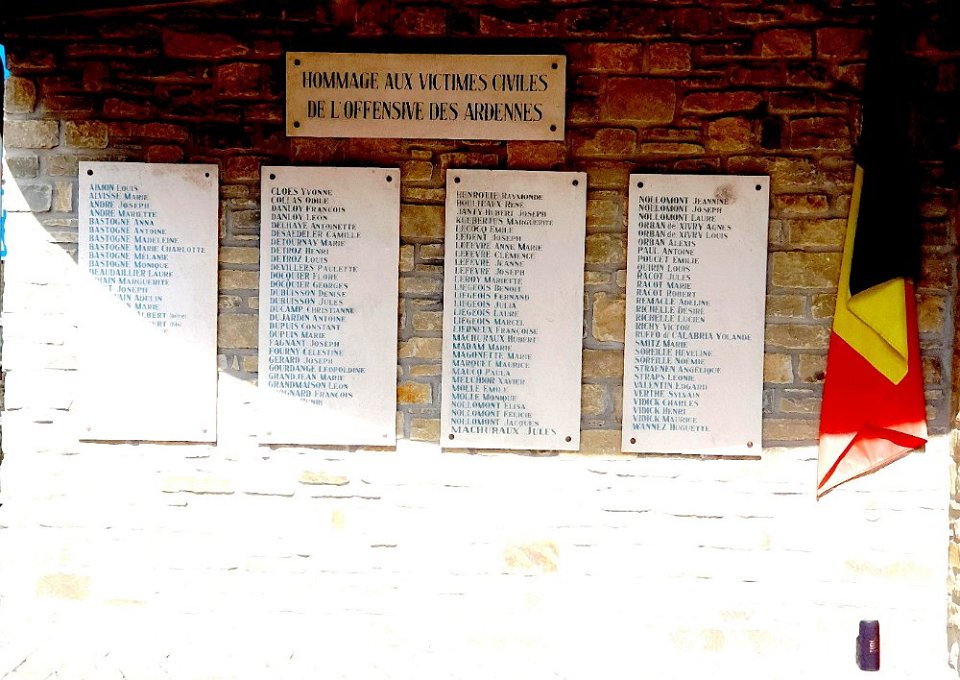 HOMMAGE AUX VICTIMES CIVILES
DE L'OFFENSIVE DES ARDENNES
AIMON LOUIS
ALVISSE MARIE
ANDRE JOSEPH
ANDRE MARIETTE
BASTOGNE ANNA
BASTOGNE ANTOINE
BASTOGNE MADELEINE
BASTOGNE MARIE CHARLOTTE
BASTOGNE MÉLANIE
BASTOGNE MONIQUE
BEAUDAILLIER LAURE
MARGUERITE
JOSEPH
ADELIN
MARIE
CLOES YVONNE
COLLAS ODILE
DANLOY FRANCOIS
DANLOY LEON
DELHAYE ANTOINETTE
DESAEDELER CAMILLE
DETOURNAY MARIE
DETROZ HENRI
DETROZ LOUIS
DEVILLERS PAULETTE
DOCQUIER FLORY
DOCQUIER GEORGES
DUBUISSON DENISE
DUBUISSON JULES
DUCAMP CHRISTIANNE
DUJARDIN ANTOINE
DUPUIS CONSTANT
DUPUIS MARIE
FAGNANT JOSEPH
FOURNY CÉLESTINE
GERARD JOSEPH
GOURDANGE LEOPOLDINE
GRANDJEAN MARIE
GRANDMAISON LEON
FRANCOIS
HENROTTE RAYMONDE
HOULTEAUX RENÉ
JANTY HUBERT JOSEPH
MARGUERITE
LECOCQ EMILE
LEDENT JOSEPH
LEFEVRE ANNE MARIE
LEFEVRE CLÉMENCE
LEFEVRE JEANNE
LEFEVRE JOSEPH
LEROY MARIETTE
LIEGEOIS BENOIT
LIEGEOIS FERNAND
LIEGEOIS JULIA
LIEGEOIS LAURE
LIEGEOIS MARCEL
LIERNEUX FRANCOISE
MACHURAUX HUBERT
MADAM MARIE
MAGONETTE MARIE
MARQUET MAURICE
MAUCQ PAULA
MELCHIOR XAVIER
MOLLE EMILY
MOLLE MONIQUE
NOLLOMONT ELISA
NOLLOMONT FELICIE
NOLLOMONT JACQUES
MACHURAUX JULES
NOLLOMONT JEANNINE
NOLLOMONT JOSEPH
NOLLOMONT LAURE
ORBAN de XIVRY AGNES
ORBAN de XIVRY LOUIS
ORBAN ALEXIS
PAUL ANTOINE
POUCET EMILIE
QUIRIN LOUIS
RACOT JULES
RACOT MARIE
RACOT ROBERT
REMACLE ADELINE
RICHELLE DESIRE
RICHELLE LUCIEN
RICHY VICTOR
RUFFO di CALABRIA YOLANDE
SMITZ MARIE
SOREILLE HEVELINE
SOREILLE NOÉMIE
STRAENEN ANGÉLIQUE
STRAPS LEONIE
VALENTIN EDGARD
VERTHE SYLVAIN
VIDICK CHARLES
VIDICK HENRI
VIDICK MAURICE
WANNEZ HUGUETTE